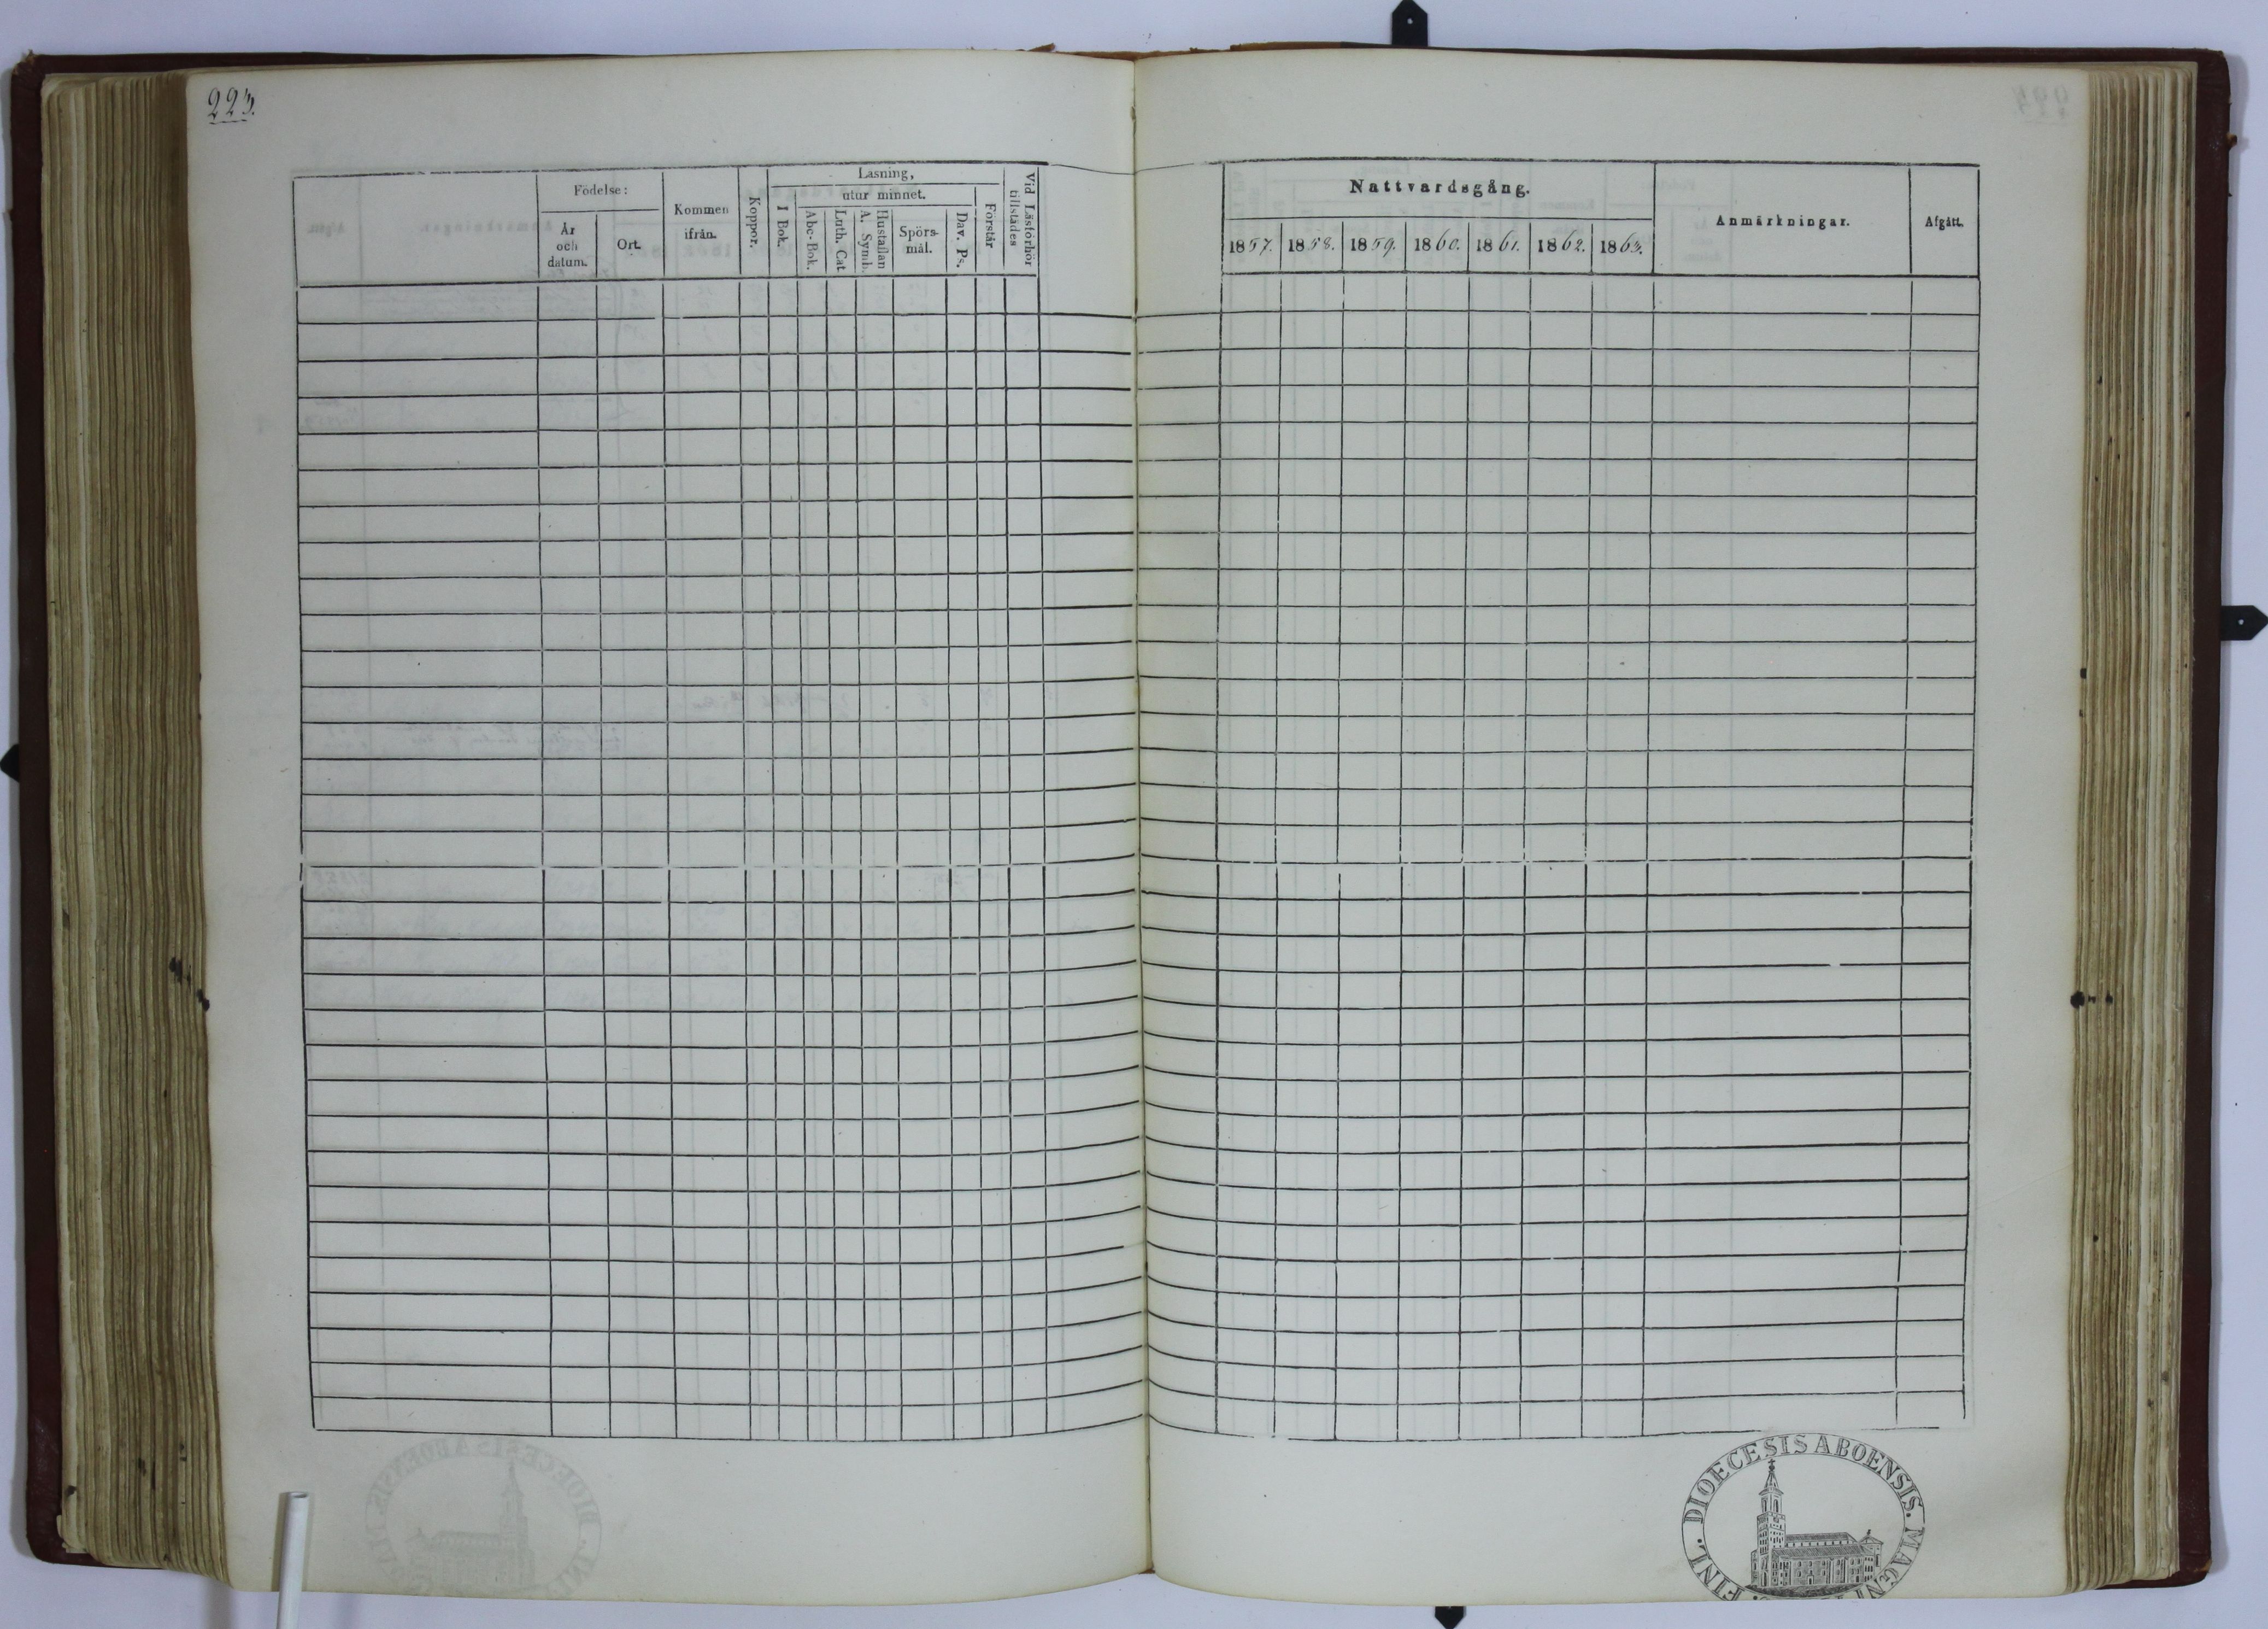 223.
Födelse:
År
och
datum.
Ort.
Kommen
ifrån.
Koppor.
Läsning,
I Bok.
utur minnet.
Abc-Bok.
Luth. Cat
Hustaflan
A. Symb.
Spörs-
mål.
Dav. Ps.
Förstår
Vid Läsförhör
tillstädes
Nattvardsgång.
1857. 1858. 1859. 1860. 1861. 1862. 1863.
Anmärkningar.
Afgått.
FINL. DIOECESIS ABOENSIS. MAGNI